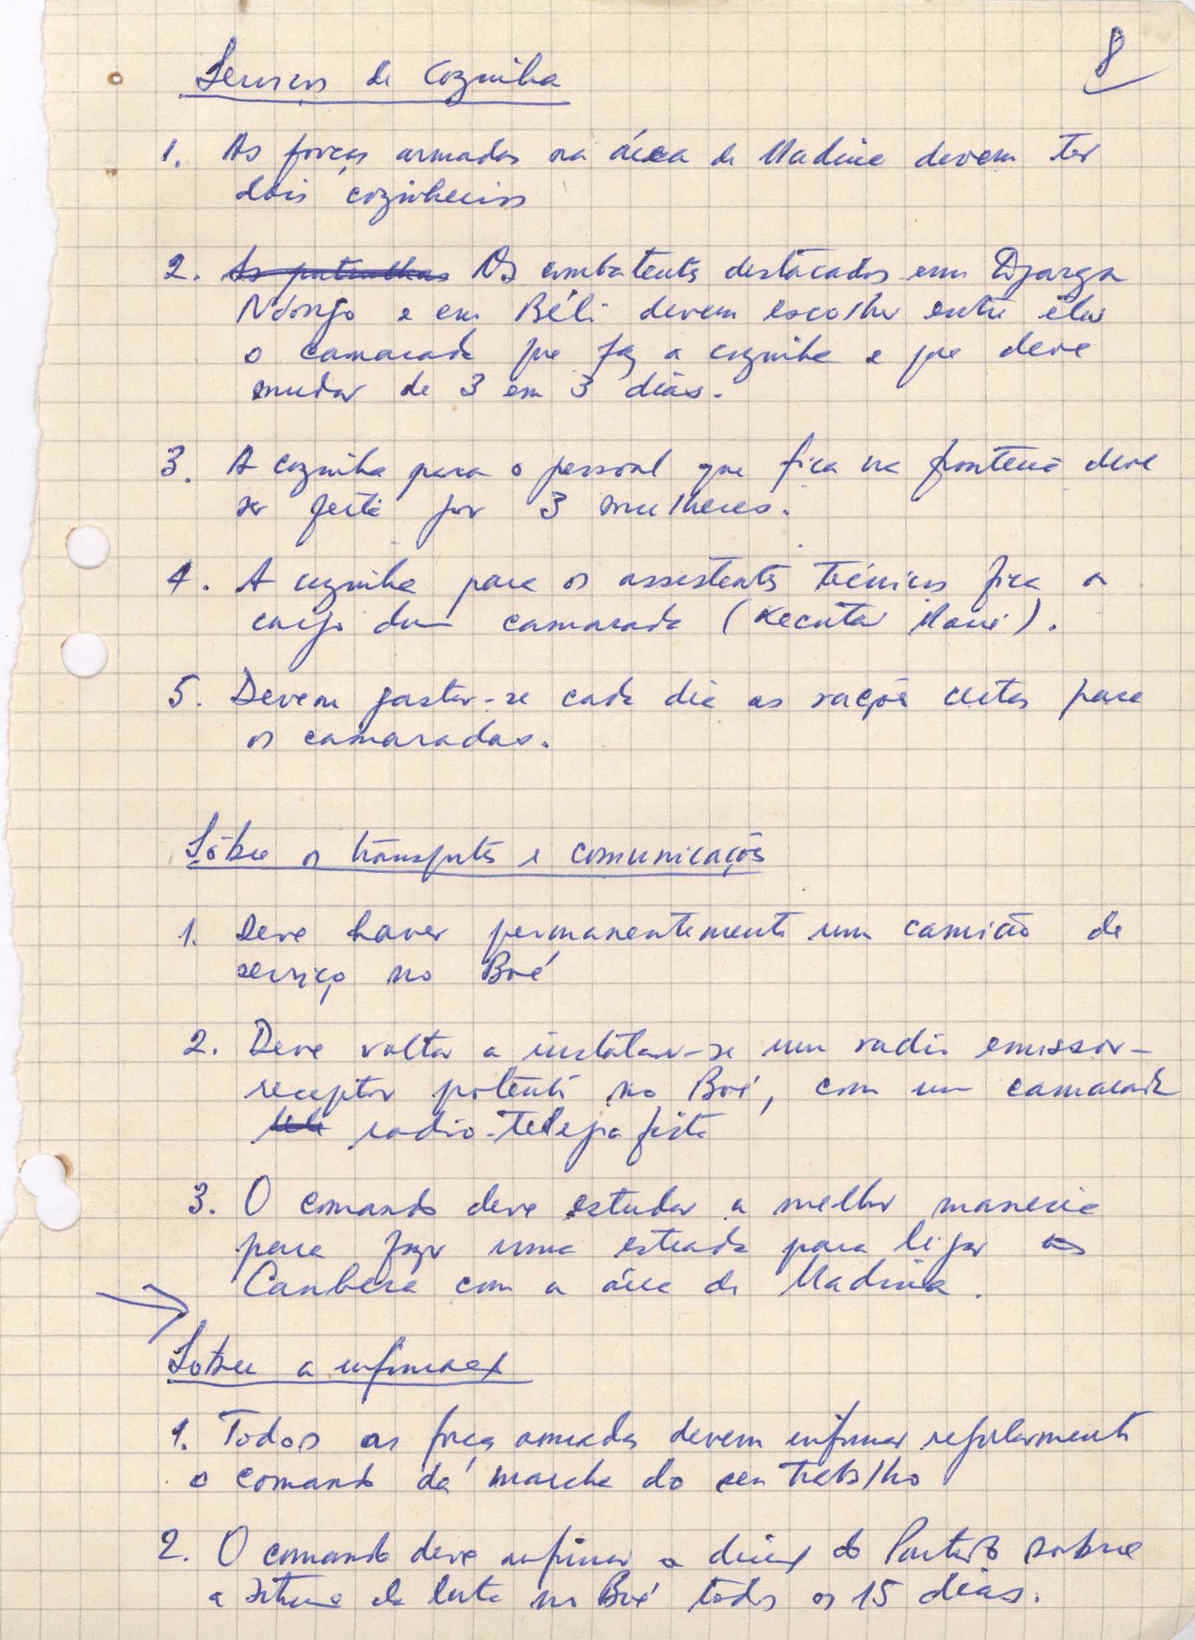 8
Serviços de Cozinha
1. As forças armadas na área de Madina devem ter
dois cozinheiros
2. Os combatentes destacados em Djarga
Ndongo e em Béli devem escolher entre êles
o camarada que faz a cozinha e que deve
mudar de 3 em 3 dias.
3. A cozinha para o pessoal que fica na fronteira deve
ser feita por 3 mulheres.
4. A cozinha para os assistentes técnicos fica a
cargo dum camarada (Secuta Mané).
5. Devem gastar-se cada dia as rações certas para
os camaradas.
Sôbre os transportes e comunicações
1. Deve haver permanentemente um camião de
serviço no Boé
2. Deve voltar a instalar-se um radio emissor-
receptor potente no Boé, com um camarada
radio-telegrafista
3. O comando deve estudar a melhor maneira
para fazer uma estrada para ligar
Canbera com a área de Madina.
Sobre a informação
1. Todas as forças armadas devem informar regularmente
o comando da marcha do seu trabalho
2. O comando deve informar a direcção do Partido sobre
a situação da luta no Boé todos os 15 dias.